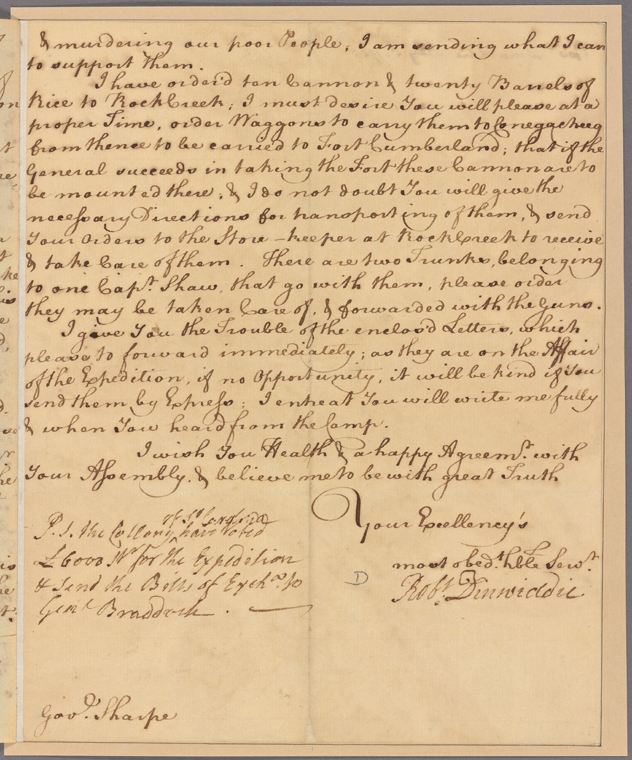 & murdering our poor People, I am sending what I can
to support them.
I have order'd ten Cannon & twenty Barrels of
Rice to Rock Creek; I must desire You will please at a
proper Time, order Waggons to carry them to Conegacheeg
from thence to be carried to Fort Cumberland; that if the
General succeeds in taking the Fort these Cannon are to
be mounted there, & I do not doubt You will give the
necessary Directions for transporting of them, & send
Your Orders to the Store-keeper at Rock Creek to receive
& take Care of them. There are two Trunks, belonging
to one Capt. Shaw, that go with them, please order
they may be taken Care of, & forwarded with the Guns.
I give You the Trouble of the enclos'd Letters, which
please to forward immediately; as they are on the Affair
of the Expedition, if no Opportunity, it will be kind if You
send them by Express: I entreat You will write me fully
& when You heard from the Camp.
I wish You Health & a happy Agreemt. with
Your Assembly, & believe me to be with great Truth
Your Excellency's
most obedt. hble Servt.
Robt. Dinwiddie
P.S. the Collony of So. Carolina have voted
£6000 for the Expedition
& send the Bills of Exchae. to
Genl. Braddock.
D
Govr. Sharpe